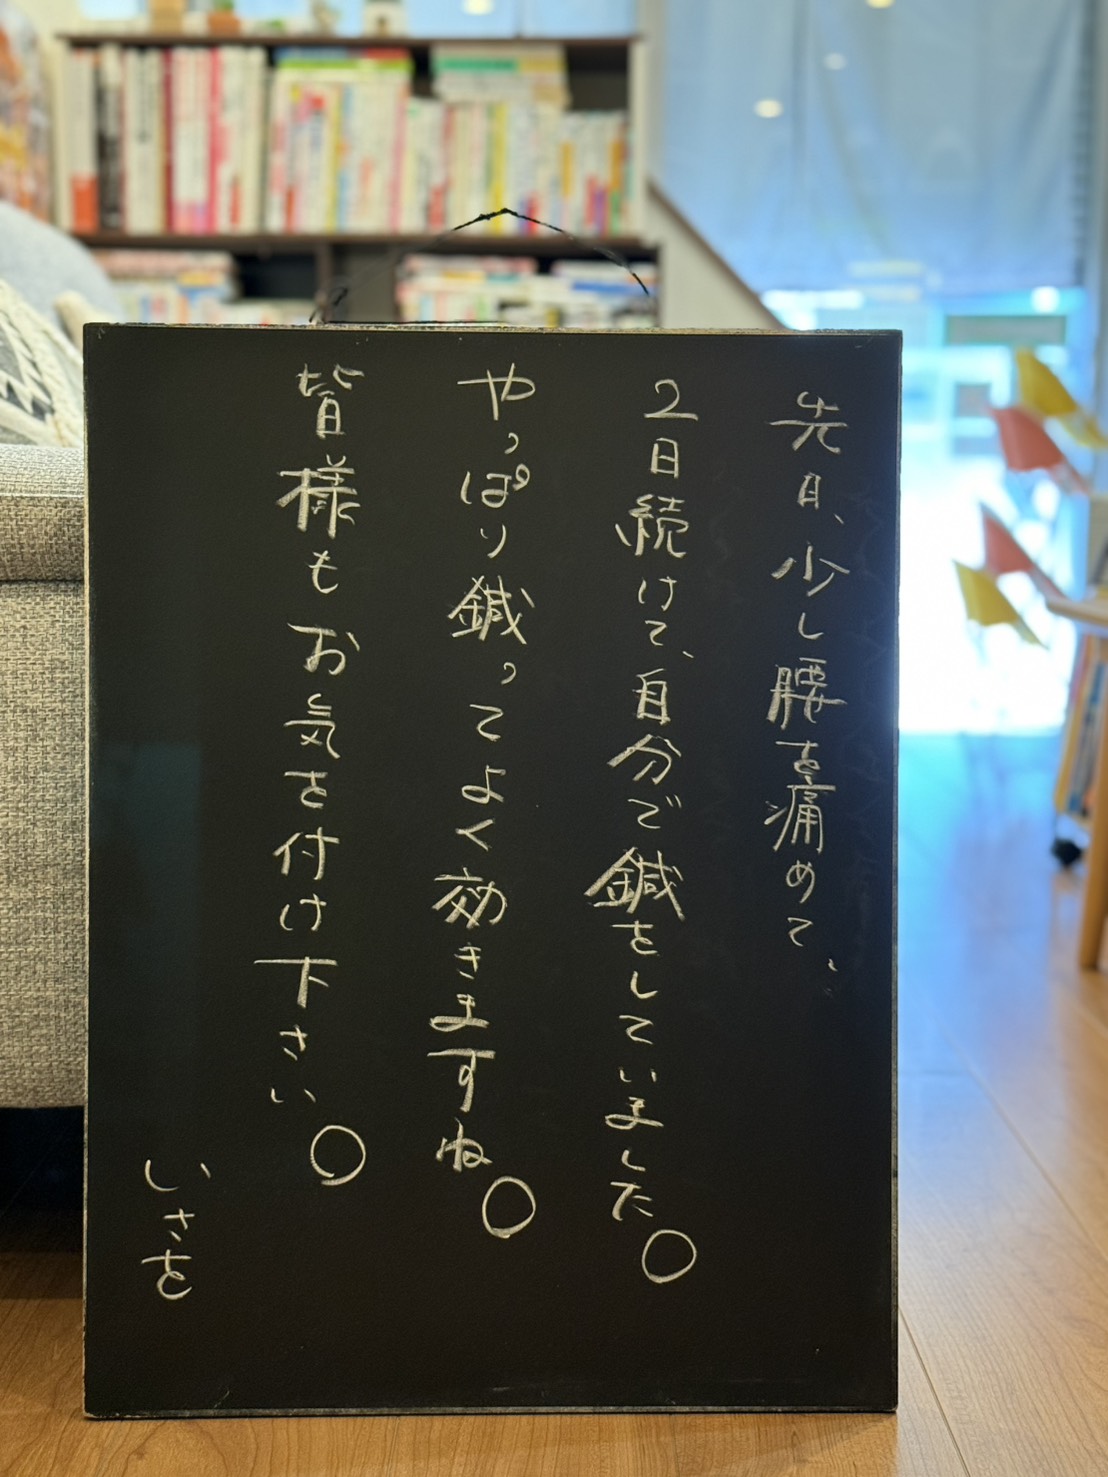 先日、少し腰を痛めて、
2日続けて、自分で鍼をしていました。
やっぱり鍼ってよく効きますね。
皆様もお気を付け下さい。
いさを